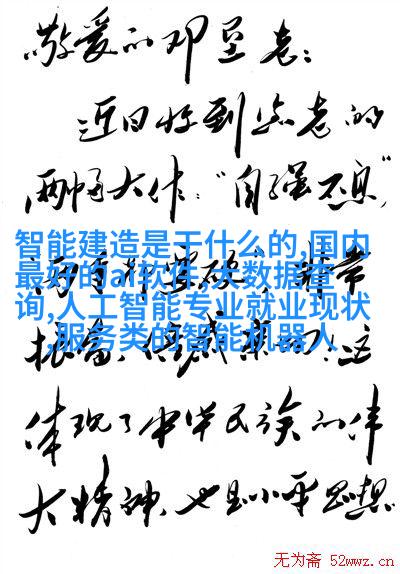 敬爱的邓垦老：
近日收到您老的
两幅大作：“自强不息”
智能建造是干什么的,国内
最好的ai软件,大数据查
询,人工智能专业就业现状
,服务类的智能机器人
体现了中华民族的伟
大精神，也是小平思想
无为斋 52wwz.cn